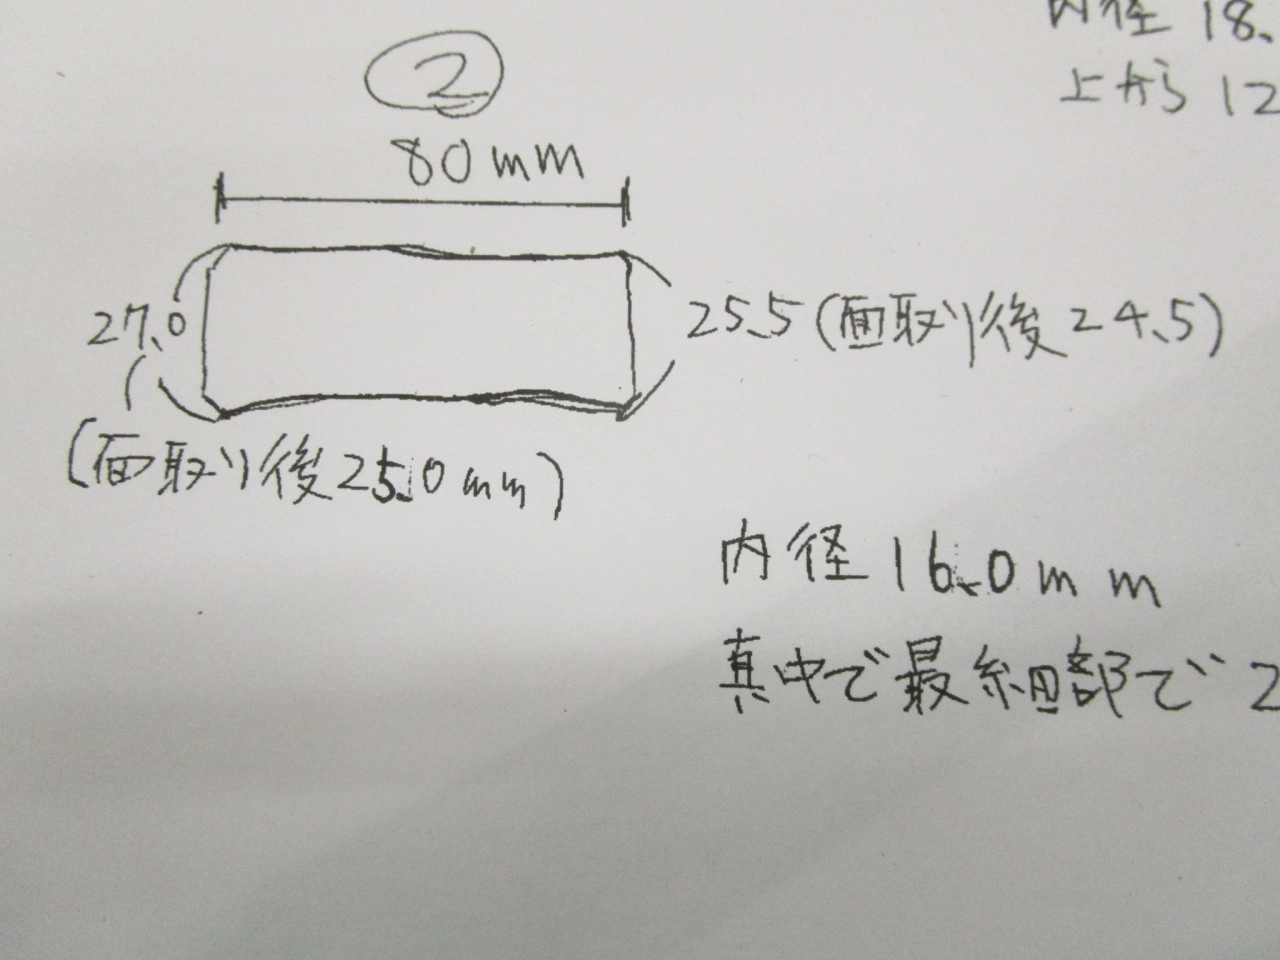 内径 18.
上から 12
②
80mm
27.0
25.5(面取り後24.5)
(面取り後25.0mm)
内径16.0mm
真中で最細部で2